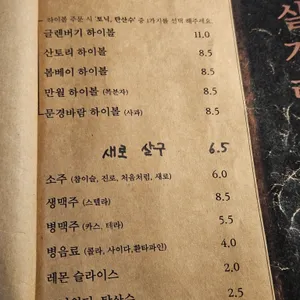 하이볼 주문 시 '토닉, 탄산수' 중 1가지를 선택 해주세요.
글렌버기 하이볼 11.0
산토리 하이볼 8.5
봄베이 하이볼 8.5
만월 하이볼 (복분자) 8.5
문경바람 하이볼 (사과) 8.5
새로 살구 6.5
소주 (참이슬, 진로, 처음처럼, 새로) 6.0
생맥주 (스텔라) 8.5
병맥주 (카스, 테라) 5.5
병음료 (콜라, 사이다, 환타파인) 4.0
레몬 슬라이스 2.0
탄산수 2.5